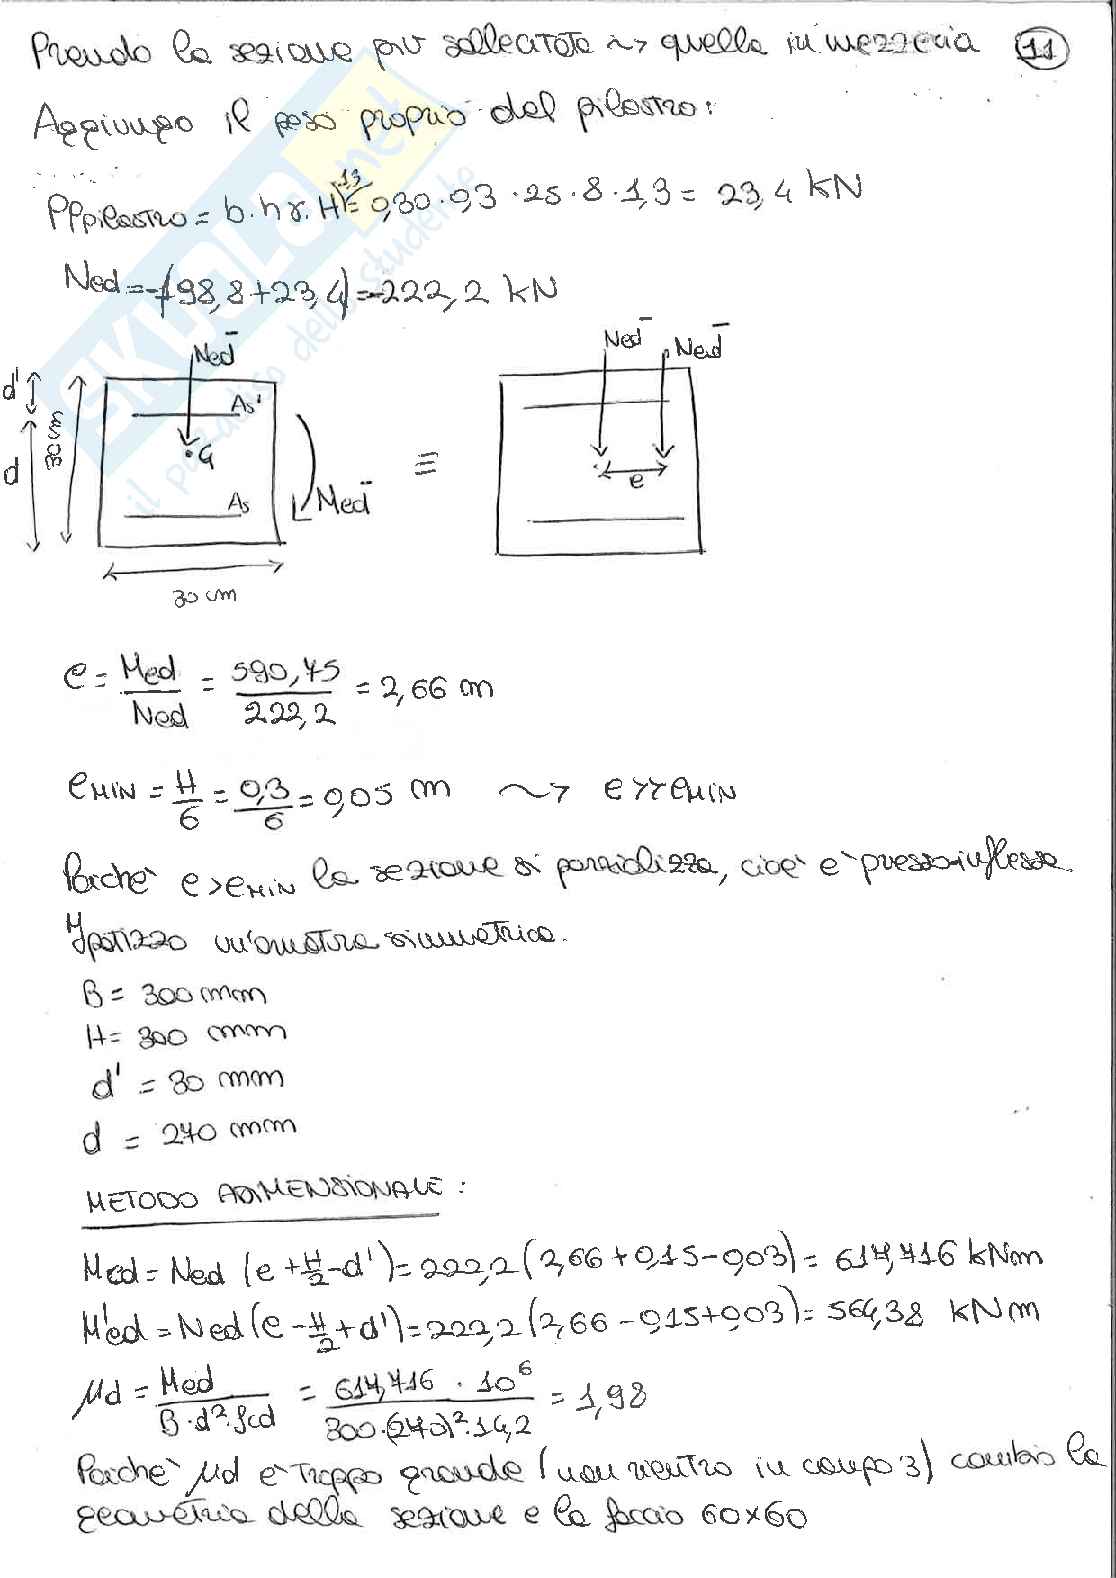 Prendo la sezione più sollecitata ~> quella in mezzeria 11
Aggiungo il peso proprio del pilastro:
PPpilastro = b·h·γ·H·1.3 = 0,30·0,3·25·8·1,3 = 23,4 kN
Ned = -(198,8+23,4) = -222,2 kN
Ned⁻
As'
G
As
Med⁻
d'
d
30 cm
30 cm
≡
Ned⁻ Ned⁻
e
e = Med/Ned = 590,75/222,2 = 2,66 m
eMIN = H/6 = 0,3/6 = 0,05 m ~> e>>eMIN
Poiché e>eMIN la sezione si parzializza, cioè è presso-inflessa
Ipotizzo un'armatura simmetrica.
B = 300 mm
H = 300 mm
d' = 30 mm
d = 270 mm
METODO ADIMENSIONALE:
Med = Ned (e + H/2 - d') = 222,2 (2,66 + 0,15 - 0,03) = 617,716 kNm
M'ed = Ned (e - H/2 + d') = 222,2 (2,66 - 0,15 + 0,03) = 564,38 kNm
μd = Med/(B·d²·fcd) = 617,716·10⁶/(300·(270)²·14,2) = 1,98
Poiché μd è troppo grande (non rientro in campo 3) cambio la
geometria della sezione e la faccio 60x60
SKUOLA.net
il paradiso dello studente